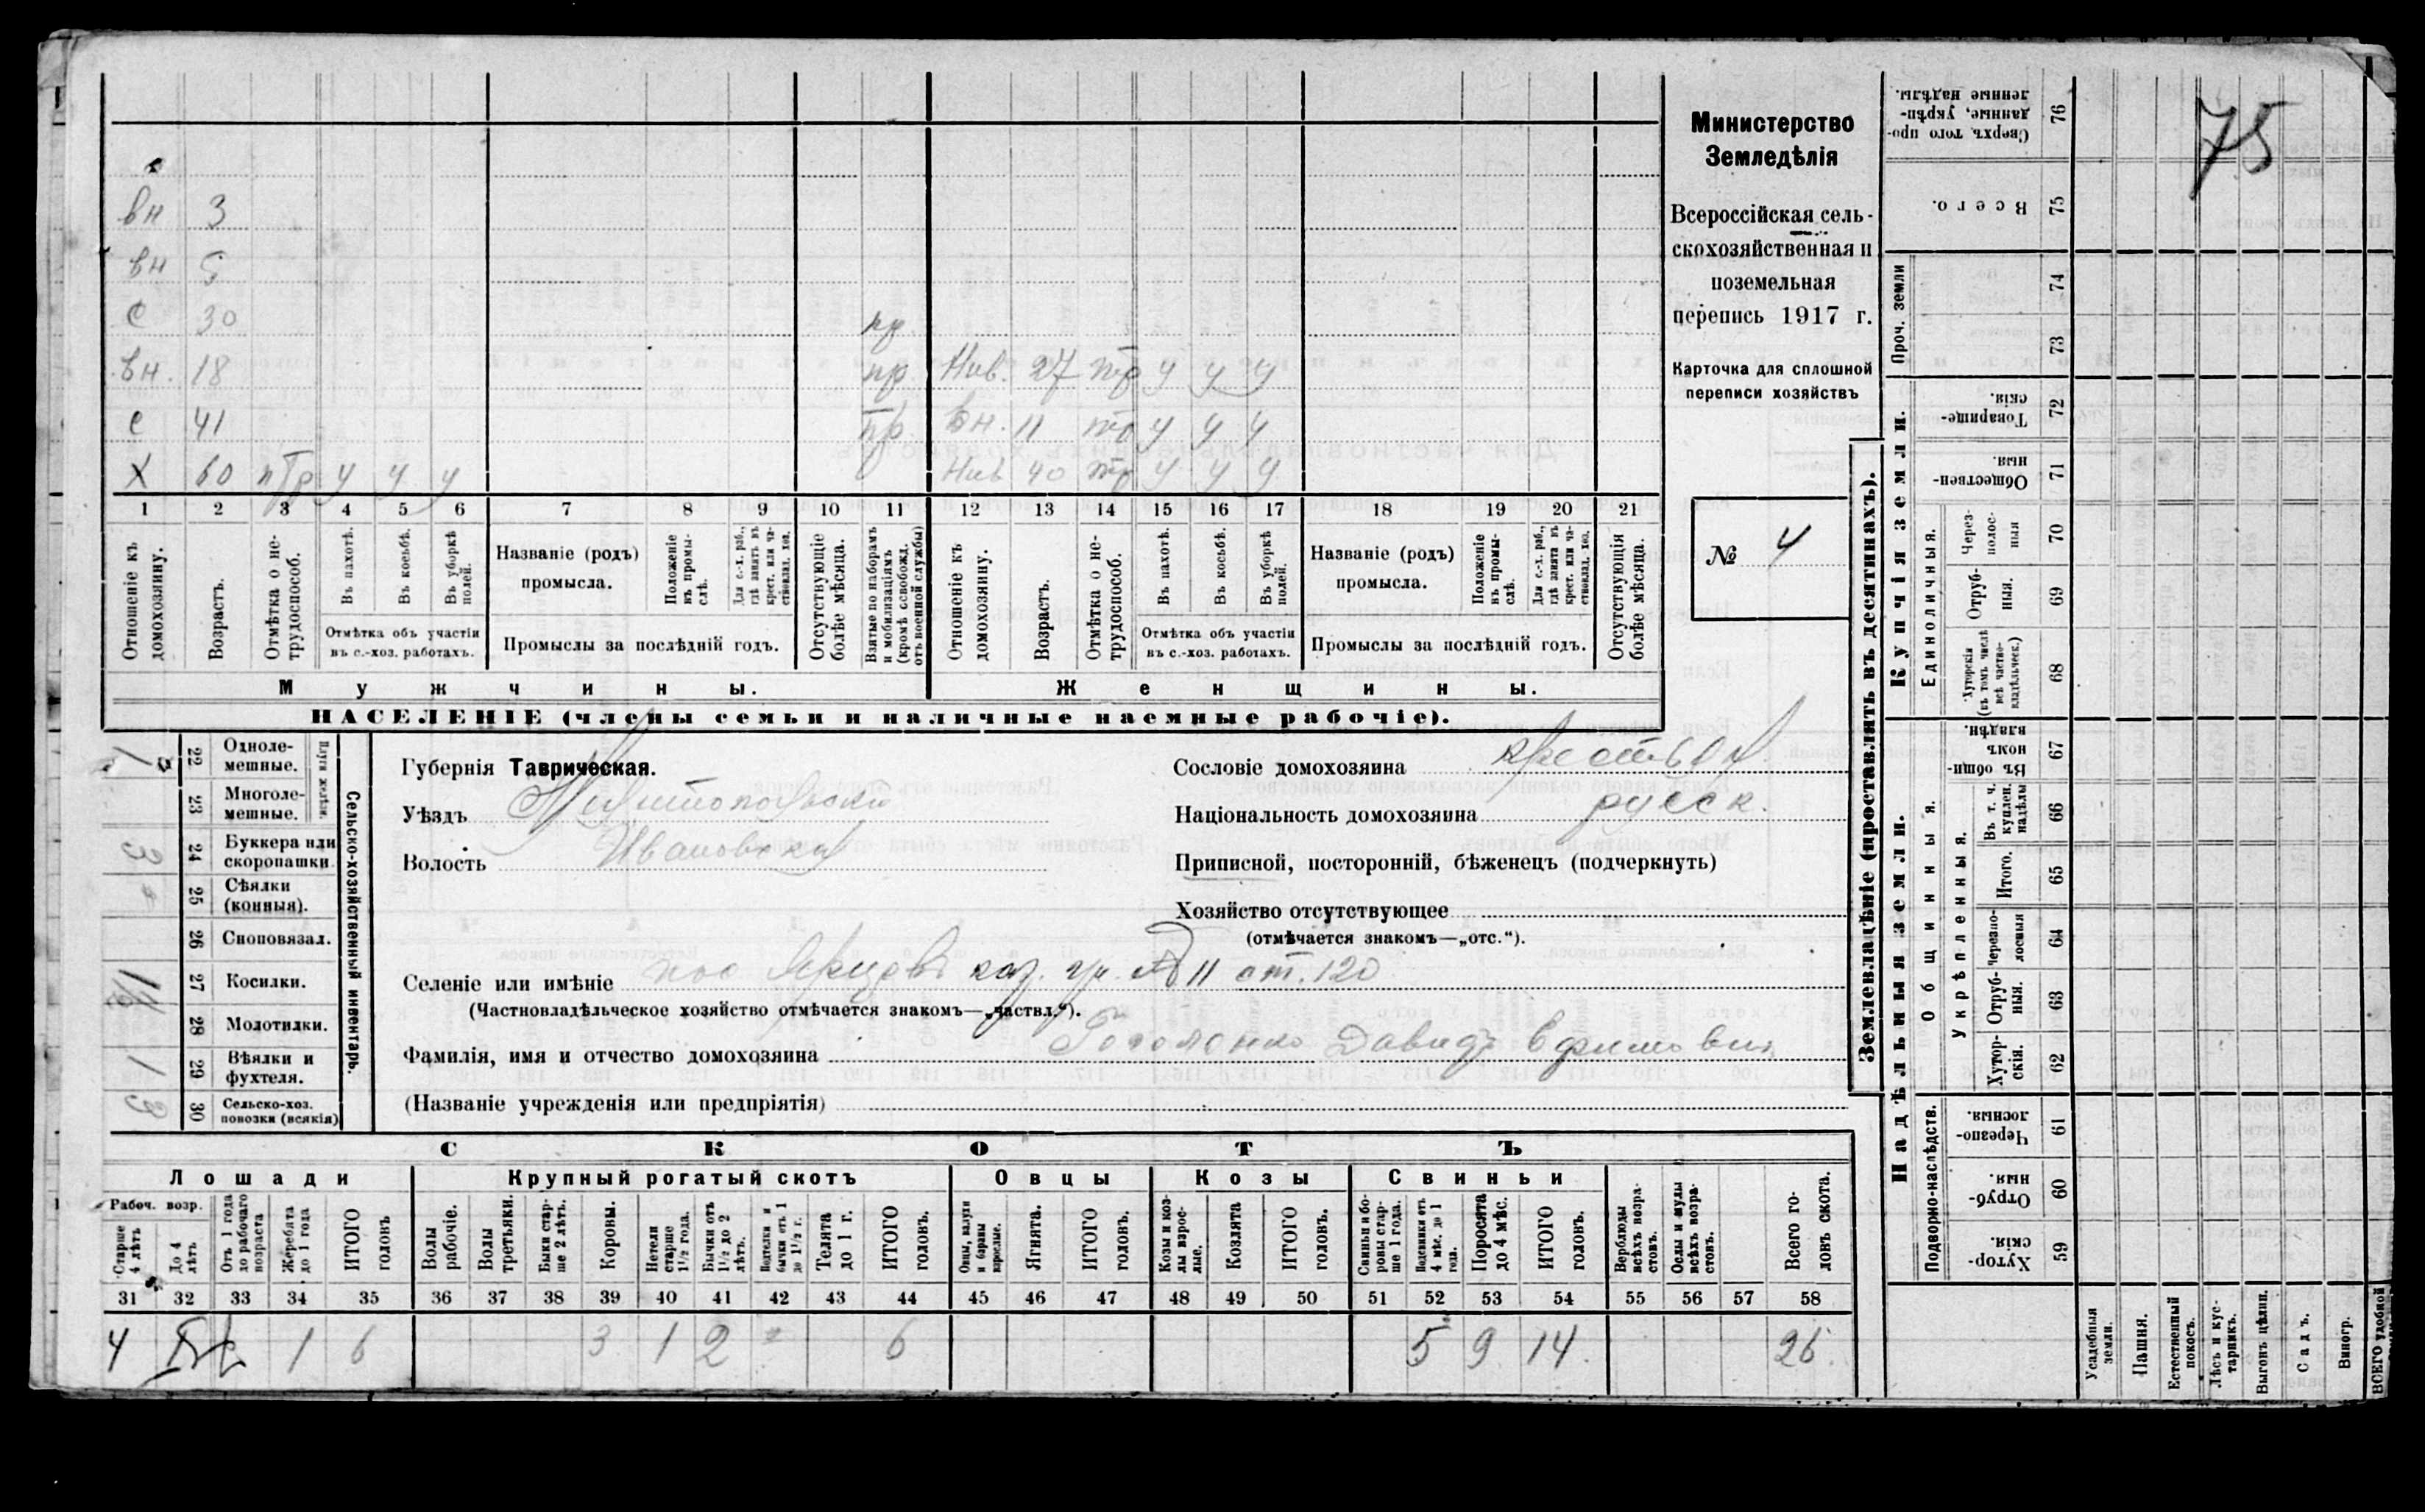 75
Министерство
Земледѣлія
Всероссійская сель-
скохозяйственная и
поземельная
перепись 1917 г.
Карточка для сплошной
переписи хозяйствъ
№ 4
вн 3
вн 5
с 30 пр
вн. 18 пр. Нив. 27 тр у у у
с 41 пр. вн. 11 у у у
х 60 птр у у у Нив 40 тр у у у
1 2 3 4 5 6 7 8 9 10 11 12 13 14 15 16 17 18 19 20 21
Отношеніе къ домохозяину.
Возрастъ.
Отмѣтка о не-трудоспособ.
Въ пахотѣ.
Въ косьбѣ.
Въ уборкѣ полей.
Отмѣтка объ участіи
въ с.-хоз. работахъ.
Названіе (родъ)
промысла.
Положеніе въ промы-слѣ.
Для с.-х. раб., гдѣ занятъ въ крест. или ча-стновлад. хоз.
Промыслы за послѣдній годъ.
Отсутствующіе болѣе мѣсяца.
Взятые по наборамъ и мобилизаціямъ (кромѣ освобожд. отъ военной службы)
Отношеніе къ домохозяину.
Возрастъ.
Отмѣтка о не-трудоспособ.
Въ пахотѣ.
Въ косьбѣ.
Въ уборкѣ полей.
Отмѣтка объ участіи
въ с.-хоз. работахъ.
Названіе (родъ)
промысла.
Положеніе въ промы-слѣ.
Для с.-х. раб., гдѣ занята въ крест. или ча-стновлад. хоз.
Промыслы за послѣдній годъ.
Отсутствующія болѣе мѣсяца.
Мужчины.
Женщины.
НАСЕЛЕНІЕ (члены семьи и наличные наемные рабочіе).
Сельско-хозяйственный инвентарь.
Плуги желѣзн.
22 Одноле-мешные.
23 Многоле-мешные.
24 Буккера или скоропашки. 3
25 Сѣялки (конныя).
26 Сноповязал.
27 Косилки.
28 Молотилки.
29 Вѣялки и фухтеля. 1
30 Сельско-хоз. повозки (всякія) 3
Губернія Таврическая.
Уѣздъ Мелитопольскій
Волость Ивановская
Сословіе домохозяина крестьян.
Національность домохозяина русск.
Приписной, посторонній, бѣженецъ (подчеркнуть)
Хозяйство отсутствующее
(отмѣчается знакомъ—„отс.“).
Селеніе или имѣніе пос каз. уч. № 11 от. 120
(Частновладѣльческое хозяйство отмѣчается знакомъ—„частвл.“).
Фамилія, имя и отчество домохозяина Гоголенко Давидъ Ефимович
(Названіе учрежденія или предпріятія)
СКОТЪ
Лошади
Крупный рогатый скотъ
Овцы
Козы
Свиньи
Рабоч. возр.
Старше 4 лѣтъ
До 4 лѣтъ
Отъ 1 года до рабочаго возраста
Жеребята до 1 года
ИТОГО головъ
Волы рабочіе.
Волы третьяки.
Быки стар-ше 2 лѣтъ.
Коровы.
Нетели старше 1 1/2 года.
Бычки отъ 1 1/2 до 2 лѣтъ.
Подтелки и бычки отъ 1 до 1 1/2 г.
Телята до 1 г.
ИТОГО головъ.
Овцы, валухи и бараны взрослые.
Ягнята.
ИТОГО головъ.
Козы и коз-лы взрос-лые.
Козлята
ИТОГО головъ.
Свиньи и бо-ровы стар-ше 1 года.
Подсвинки отъ 4 мѣс. до 1 года.
Поросята до 4 мѣс.
ИТОГО головъ.
Верблюды всѣхъ возра-стовъ.
Ослы и мулы всѣхъ возра-стовъ.
Всего го-ловъ скота.
31 32 33 34 35 36 37 38 39 40 41 42 43 44 45 46 47 48 49 50 51 52 53 54 55 56 57 58
4 1 6 3 1 2 6 5 9 14. 26.
Землевладѣніе (проставлять въ десятинахъ).
Купчія земли.
Надѣльныя земли.
Проч. земли
Единоличныя.
Общинныя.
Укрѣпленныя.
Подворно-наслѣдств.
76 Сверхъ того про-данные, укрѣп-ленные надѣлы.
75 Всего.
74
73
72 Товарище-скія.
71 Обществен-ныя.
70 Через-полос-ныя
69 Отруб-ныя.
68 Хуторскія (въ томъ числѣ всѣ частно-владѣльческ.)
67 Въ общи-номъ владѣн.
66 Въ т. ч. куплен. надѣлы
65 Итого.
64 Черезпо-лосныя
63 Отруб-ныя.
62 Хутор-скія.
61 Черезпо-лосныя.
60 Отруб-ныя.
59 Хутор-скія.
Усадебныя земли.
Пашня.
Естественный покосъ.
Лѣсъ и кус-тарникъ.
Выгонъ цѣлин.
Садъ.
Виногр.
ВСЕГО удобной